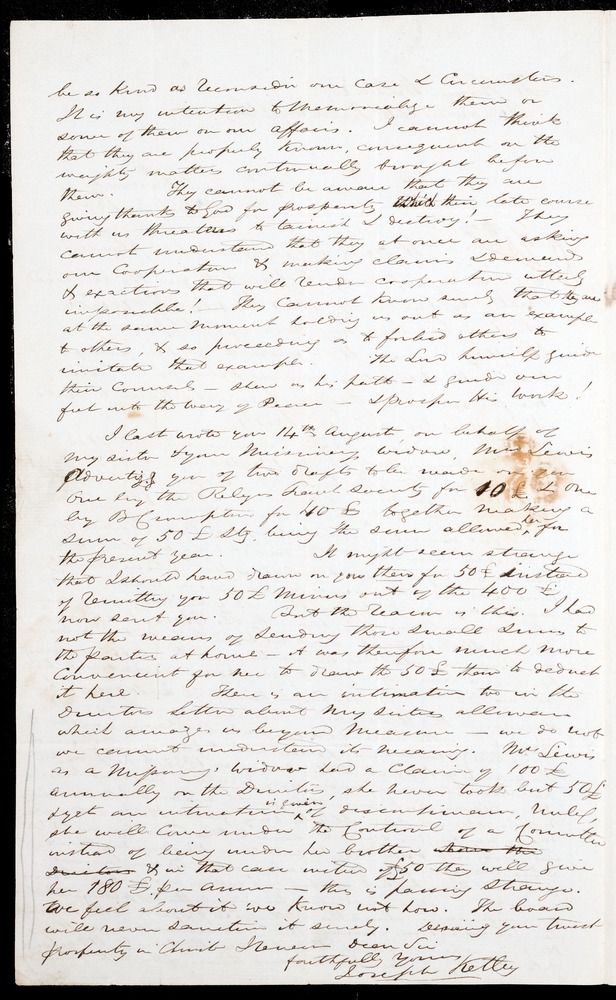 be so kind as reconsider our case & Circumstces.
It is my intention to memorialize them or
some of them on our affairs. I cannot think
that they are properly known, consequent on the
weighty matters continually brought before
them. They cannot be aware that they are
giving thanks to God for prosperity which their late course
with us threatens to tarnish & destroy! – They
cannot understand that they at once are asking
our Cooperation & making claims & demands
& exactions that will render cooperation utterly
impossible! – They cannot know surely that they are
at the same moment holding us out as an example
to others, & so proceeding as to forbid others to
imitate that example. The Lord himself guide
their Counsels – shew us his path – & guide our
feet into the way of Peace – & prosper His work!
I last wrote you 14th August, on behalf of
my sister & your Missionary's widow, Mrs Lewis
Advertizg you of two drafts to be made on you
One by the Religs Tract Society for 10 £ & One
by B Crumpton for 40 £ together making a
sum of 50 £ Stg. being the sum allowed her for
the present year. It might seem strange
that I should have drawn on you then for 50 £ instead
of remitting you 50 £ minus out of the 400 £
now sent you. But the reason is this. I had
not the means of sending those small sums to
the parties at home – it was therefore much more
Convenient for me to draw the 50 £ than to deduct
it here. There is an intimation too in the
Directors Letter about my sisters allowance
which amazes us beyond measure – we do not
we cannot understand its meaning. Mrs Lewis
as a Missiony. widow had a Claim of 100 £
annually on the Directors, she never took but 50 £
& yet an intimation is given of discontinuance, unless
she will Come under the Controul of a Committee
instead of being under her brother
Directors & in that case instead of £50 they will give
her 180 £ per annum – this is passing strange.
We feel about it we know not how. The board
will never sanction it surely. Desiring your truest
prosperity in Christ I remain Dear Sir
faithfully yours
Joseph Ketley